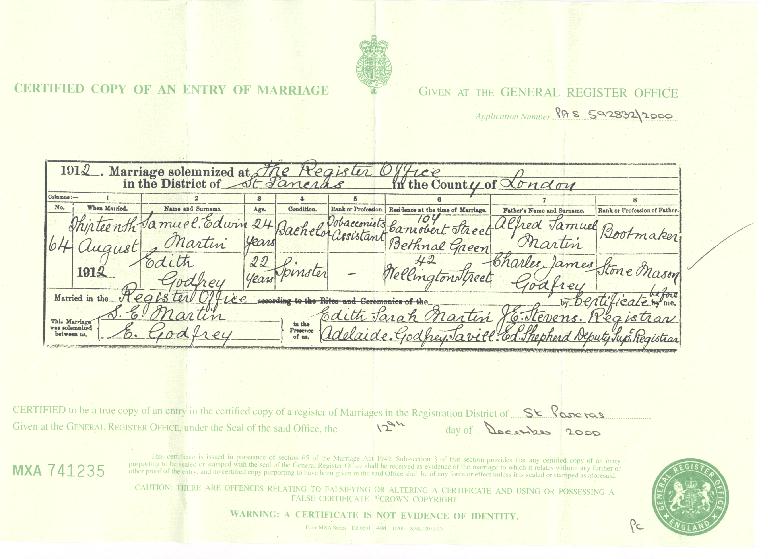 CERTIFIED COPY OF AN ENTRY OF MARRIAGE
GIVEN AT THE GENERAL REGISTER OFFICE
Application Number PAS 592832/2000
1912. Marriage solemnized at The Register Office
in the District of St Pancras in the County of London
Columns:— 1 2 3 4 5 6 7 8
No. When Married. Name and Surname. Age. Condition. Rank or Profession. Residence at the time of Marriage. Father's Name and Surname. Rank or Profession of Father.
64 Thirteenth August 1912 Samuel Edwin Martin 24 years Bachelor Tobacconists Assistant 104 Street Bethnal Green Alfred Samuel Martin Bootmaker
Edith Godfrey 22 years Spinster — 42 Wellington Street Charles James Godfrey Stone Mason
Married in the Register Office according to the Rites and Ceremonies of the by Certificate before by me,
This Marriage was solemnized between us, S. E. Martin E. Godfrey
in the Presence of us, Edith Sarah Martin Adelaide Godfrey Savill
J. E. Stevens. Registrar
Ed. Shepherd Deputy Supt Registrar
CERTIFIED to be a true copy of an entry in the certified copy of a register of Marriages in the Registration District of St Pancras
Given at the GENERAL REGISTER OFFICE, under the Seal of the said Office, the 12th day of December 2000
MXA 741235
This certificate is issued in pursuance of section 65 of the Marriage Act 1949.
CAUTION: THERE ARE OFFENCES RELATING TO FALSIFYING OR ALTERING A CERTIFICATE AND USING OR POSSESSING A
FALSE CERTIFICATE ©CROWN COPYRIGHT
WARNING: A CERTIFICATE IS NOT EVIDENCE OF IDENTITY.
GENERAL REGISTER OFFICE
ENGLAND